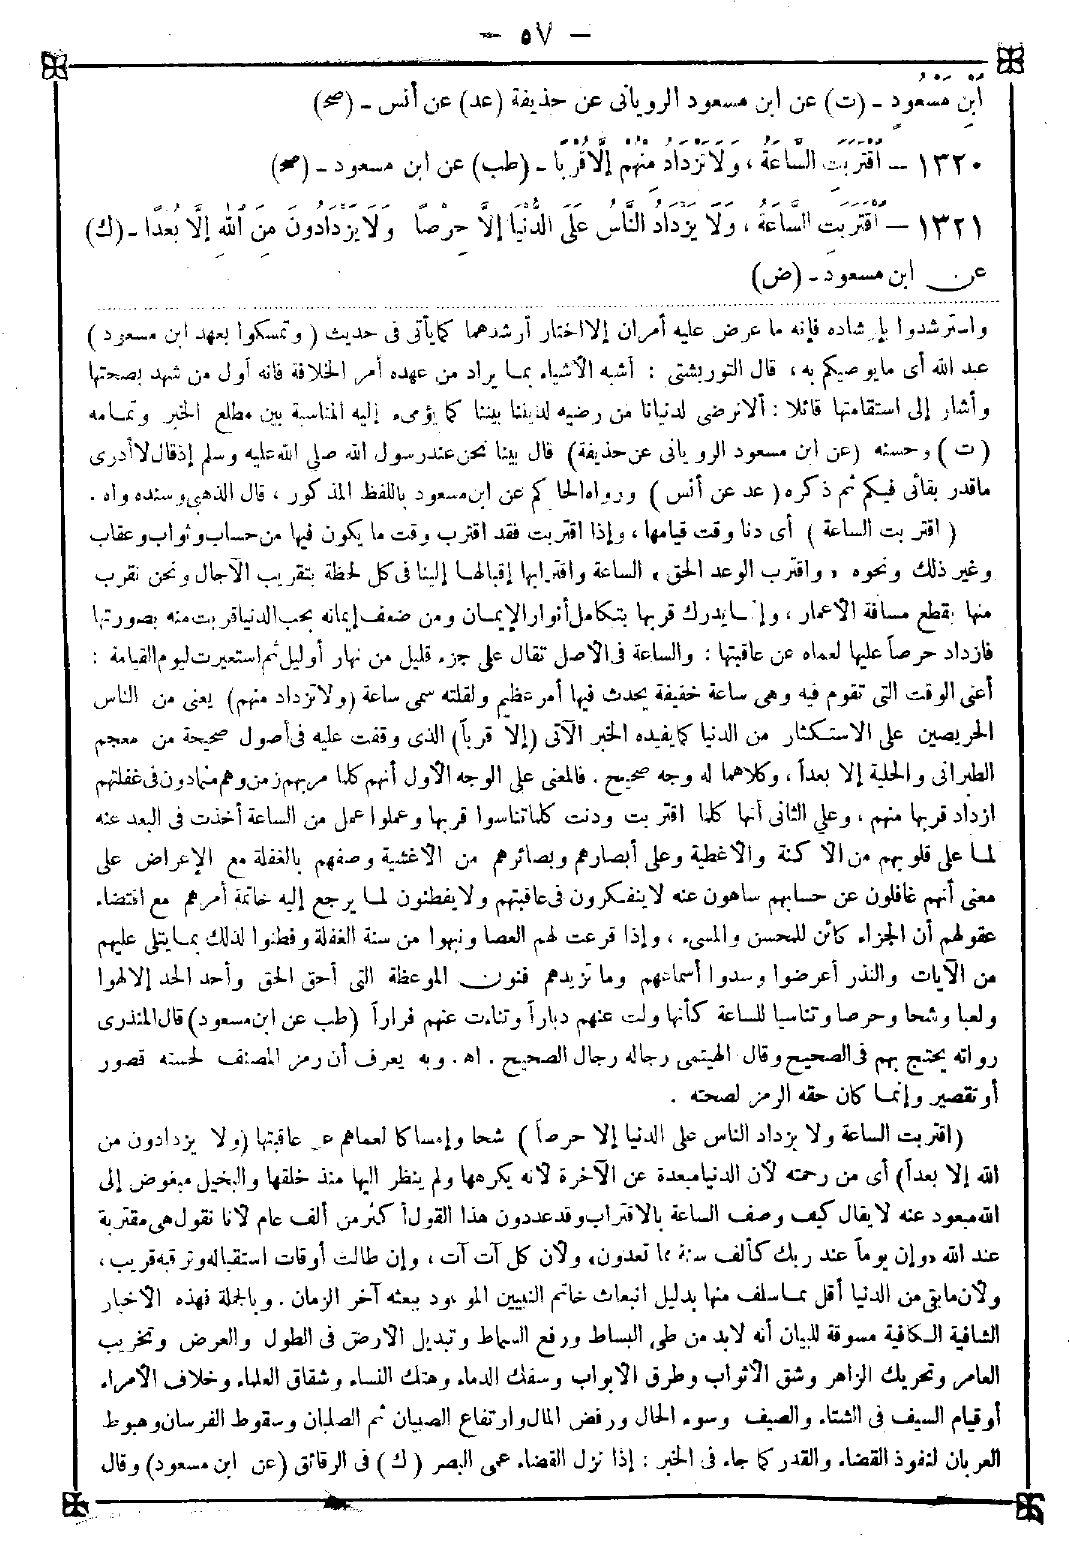 — ٥٧ —
ابْنِ مَسْعُودٍ - (ت) عن ابن مسعود الرويانى عن حذيفة (عد) عن أنس - (صح)
١٣٢٠ - اقْتَرَبَتِ السَّاعَةُ ، وَلَا تَزْدَادُ مِنْهُمْ إِلَّا قُرْبًا - (طب) عن ابن مسعود - (صح)
١٣٢١ - اقْتَرَبَتِ السَّاعَةُ ، وَلَا يَزْدَادُ النَّاسُ عَلَى الدُّنْيَا إِلَّا حِرْصًا وَلَا يَزْدَادُونَ مِنَ اللهِ إِلَّا بُعْدًا - (ك)
عن ابن مسعود - (ض)
واسترشدوا بإرشاده فإنه ما عرض عليه أمران إلا اختار أرشدهما كما يأتى فى حديث (وتمسكوا بعهد ابن مسعود)
عبد الله أى مايوصيكم به ، قال التوربشتى : أشبه الأشياء بما يراد من عهده أمر الخلافة فانه أول من شهد بصحتها
وأشار إلى استقامتها قائلا : ألا نرضى لدنيانا من رضيه لديننا بيننا كما يؤمىء إليه المناسبة بين مطلع الخبر وتمامه
(ت) وحسنه (عن ابن مسعود الرويانى عن حذيفة) قال بينا نحن عند رسول الله صلى الله عليه وسلم إذ قال لا أدرى
ماقدر بقائى فيكم ثم ذكره (عد عن أنس) ورواه الحاكم عن ابن مسعود باللفظ المذكور ، قال الذهبى وسنده واه .
(اقتربت الساعة) أى دنا وقت قيامها ، وإذا اقتربت فقد اقترب وقت ما يكون فيها من حساب وثواب وعقاب
وغير ذلك ونحوه «واقترب الوعد الحق» الساعة واقترابها إقبالها إلينا فى كل لحظة بتقريب الآجال ونحن نقرب
منها بقطع مسافة الأعمار ، وإنما يدرك قربها بتكامل أنوار الإيمان ومن ضعف إيمانه بحب الدنيا قربت منه بصورتها
فازداد حرصاً عليها لعماه عن عاقبتها : والساعة فى الأصل تقال على جزء قليل من نهار أو ليل ثم استعيرت ليوم القيامة :
أعنى الوقت التى تقوم فيه وهى ساعة خفيفة يحدث فيها أمر عظيم ولقلته سمى ساعة (ولا تزداد منهم) يعنى من الناس
الحريصين على الاستكثار من الدنيا كما يفيده الخبر الآتى (إلا قرباً) الذى وقفت عليه فى أصول صحيحة من معجم
الطبرانى والحلية إلا بعداً ، وكلاهما له وجه صحيح . فالمعنى على الوجه الأول أنهم كلما مر بهم زمن وهم متمادون فى غفلتهم
ازداد قربها منهم ، وعلى الثانى أنها كلما اقتربت ودنت كلما تناسوا قربها وعملوا عمل من الساعة أخذت فى البعد عنه
لما على قلوبهم من الأكنة والأغطية وعلى أبصارهم وبصائرهم من الأغشية وصفهم بالغفلة مع الإعراض على
معنى أنهم غافلون عن حسابهم ساهون عنه لا يتفكرون فى عاقبتهم ولا يفطنون لما يرجع إليه خاتمة أمرهم مع اقتضاء
عقولهم أن الجزاء كائن للمحسن والمسىء ، وإذا قرعت لهم العصا ونبهوا من سنة الغفلة وفطنوا لذلك بما يتلى عليهم
من الآيات والنذر أعرضوا وسدوا أسماعهم وما تزيدهم فنون الموعظة التى أحق الحق وأحد الحد إلا لهوا
ولعبا وشحا وحرصا وتناسيا للساعة كأنها ولت عنهم دباراً وتناءت عنهم فراراً (طب عن ابن مسعود) قال المنذرى
رواته يحتج بهم فى الصحيح وقال الهيتمى رجاله رجال الصحيح . اهـ . وبه يعرف أن رمز المصنف لحسنه قصور
أو تقصير وإنما كان حقه الرمز لصحته .
(اقتربت الساعة ولا يزداد الناس على الدنيا إلا حرصاً) شحا وإمساكا لعماهم عن عاقبتها (ولا يزدادون من
الله إلا بعداً) أى من رحمته لأن الدنيا مبعدة عن الآخرة لأنه يكرهها ولم ينظر اليها منذ خلقها والبخيل مبغوض إلى
الله مبعود عنه لا يقال كيف وصف الساعة بالاقتراب وقد عددون هذا القول أكثر من ألف عام لأنا نقول هى مقتربة
عند الله «وإن يوماً عند ربك كألف سنة مما تعدون» ولأن كل آت آت ، وإن طالت أوقات استقباله وترقبه قريب ،
ولأن مابقى من الدنيا أقل مما سلف منها بدليل انبعاث خاتم النبيين الموعود ببعثه آخر الزمان . وبالجملة فهذه الأخبار
الشافية الكافية مسوقة للبيان أنه لابد من طى البساط ورفع السماط وتبديل الأرض فى الطول والعرض وتخريب
العامر وتحريك الزاهر وشق الأثواب وطرق الأبواب وسفك الدماء وهتك النساء وشقاق العلماء وخلاف الأمراء
أو قيام السيف فى الشتاء والصيف وسوء الحال ورفض المال وارتفاع الصبيان ثم الصلبان وسقوط الفرسان وهبوط
العربان لنفوذ القضاء والقدر كما جاء فى الخبر : إذا نزل القضاء عمى البصر (ك) فى الرقائق (عن ابن مسعود) وقال